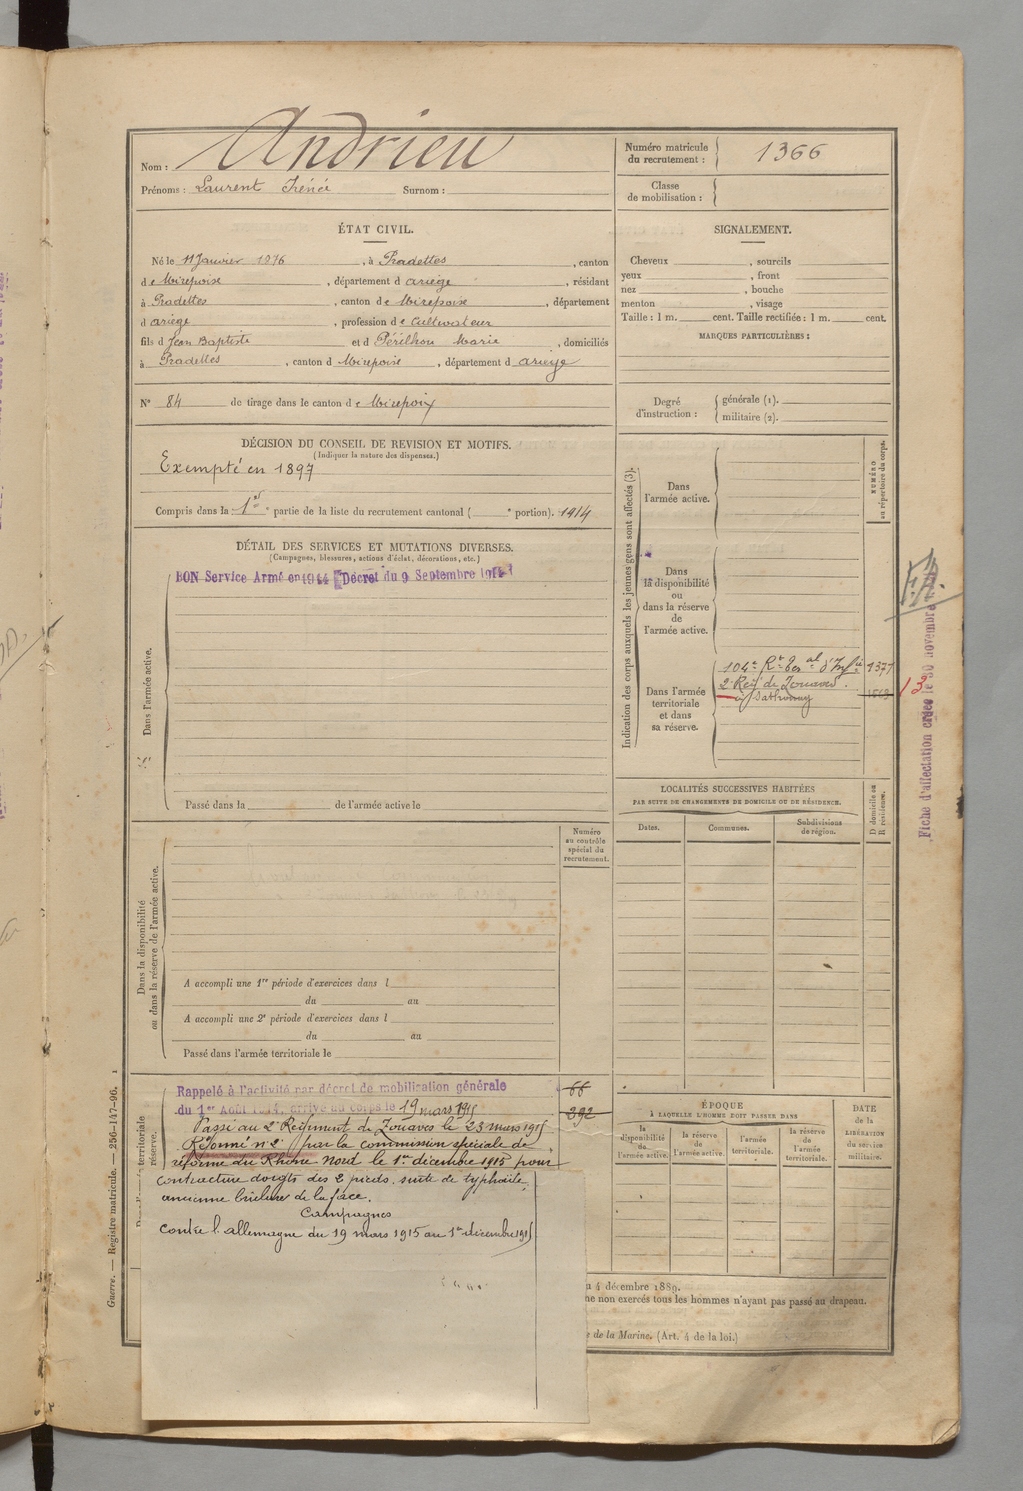 Nom : Andrieu
Prénoms : Laurent Irénée Surnom :
Numéro matricule du recrutement : 1366
Classe de mobilisation :
ÉTAT CIVIL.
Né le 11 Janvier 1876, à Pradettes, canton
de Mirepoise, département d ariège, résidant
à Pradettes, canton de Mirepoise, département
d ariège, profession de Cultivateur
fils d Jean Baptiste et d Périlhou Marie, domiciliés
à Pradettes, canton d Mirepoise, département d ariège
N° 84 de tirage dans le canton de Mirepoix
SIGNALEMENT.
Cheveux , sourcils
yeux , front
nez , bouche
menton , visage
Taille : 1 m. cent. Taille rectifiée : 1 m. cent.
MARQUES PARTICULIÈRES :
Degré d'instruction : générale (1).
militaire (2).
DÉCISION DU CONSEIL DE REVISION ET MOTIFS.
(Indiquer la nature des dispenses.)
Exempté en 1897
Compris dans la 1re partie de la liste du recrutement cantonal ( e portion). 1914
DÉTAIL DES SERVICES ET MUTATIONS DIVERSES.
(Campagnes, blessures, actions d'éclat, décorations, etc.)
BON Service Armé en 1914 Décret du 9 Septembre 1914
Dans l'armée active.
Passé dans la de l'armée active le
Indication des corps auxquels les jeunes gens sont affectés (3).
NUMÉRO au répertoire du corps.
Dans l'armée active.
Dans la disponibilité ou dans la réserve de l'armée active.
Dans l'armée territoriale et dans sa réserve.
104e Rt Ter al d'Infie 1371
2e Regt de Zouaves.
à Sathonay
13
F.A.
Fiche d'affectation créée le 30 novembre
LOCALITÉS SUCCESSIVES HABITÉES
PAR SUITE DE CHANGEMENTS DE DOMICILE OU DE RÉSIDENCE.
Dates. Communes. Subdivisions de région.
D domicile ou R résidence.
Dans la disponibilité ou dans la réserve de l'armée active.
Numéro au contrôle spécial du recrutement.
A accompli une 1re période d'exercices dans l
du au
A accompli une 2e période d'exercices dans l
du au
Passé dans l'armée territoriale le
Rappelé à l'activité par décret de mobilisation générale 66
du 1er Août 1914, arrivé au corps le 19 mars 1915 292
Passé au 2e Régiment de Zouaves le 23 mars 1915
Réformé n° 2 par la commission spéciale de
réforme du Rhône Nord le 1er décembre 1915 pour
contracture doigts des 2 pieds, suite de typhoïde,
ancienne brûlure de la face.
Campagnes
contre l'allemagne du 19 mars 1915 au 1er décembre 1915
territoriale
réserve.
ÉPOQUE
À LAQUELLE L'HOMME DOIT PASSER DANS
la disponibilité de l'armée active.
la réserve de l'armée active.
l'armée territoriale.
la réserve de l'armée territoriale.
DATE de la LIBÉRATION du service militaire.
4 décembre 1889.
ne non exercés tous les hommes n'ayant pas passé au drapeau.
de la Marine. (Art. 4 de la loi.)
Guerre. — Registre matricule. — 256-147-96. 1